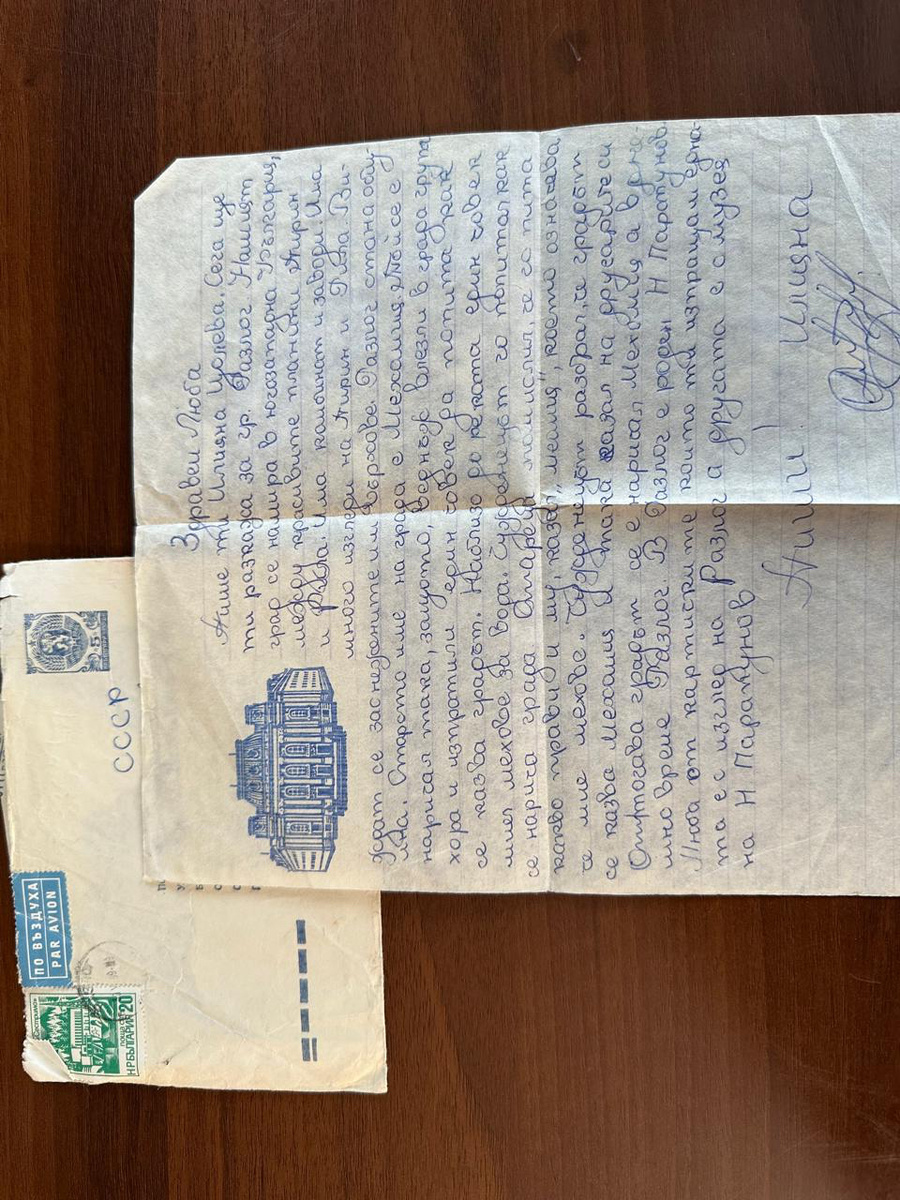 Здравей Люба
Пише ти Илияна Цолева. Сега ще
ти разкажа за гр. Разлог. Нашият
град се намира в югозападна България,
между красивите планини Пирин
и Рила. Има комбинат и заводи. Има
много изглери на Пирин и Рила. Ви-
ждат се заснежените им върхове. Разлог стана общ-
ина. Старото име на града е Мехомия. Той се е
наричал така, защото, веднъж влезли в града група
хора и изпратили един човек да попита как
се казва градът. Наблизо до реката един човек
мил мехове за вода. Чужденецът го попитал как
се нарича града. Старецът помислил, че го пита
какво прави и му казал „мехомия“, което означава,
че мие мехове. Чужденецът разбрал, че градът
се казва Мехомия и така казал на другарите си
Оттогава градът се е наричал Мехомия, а в днеш-
но време Разлог. В Разлог е роден Н Парапунов.
Една от картичките които ти изпращам една-
та е с изглед на Разлог а другата е с музея
на Н Парапунов
Пиши! Илияна
СССР
5
ПО ВЪЗДУХА
PAR AVION
НР БЪЛГАРИЯ
поща
20